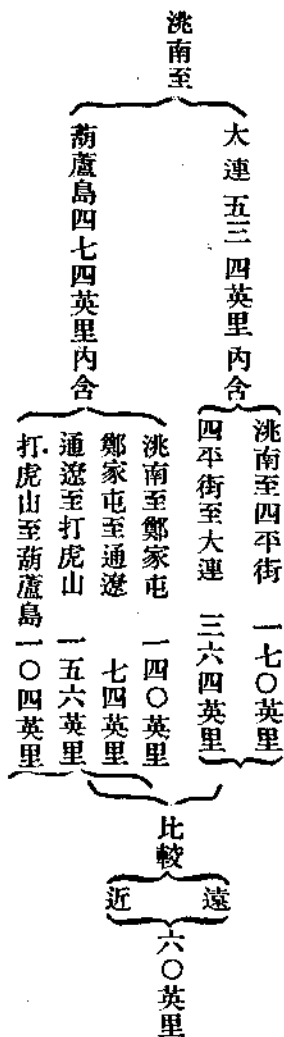 洮南至
大連五三四英里內含
洮南至四平街　一七〇英里
四平街至大連　三六四英里
葫蘆島四七四英里內含
洮南至鄭家屯　一四〇英里
鄭家屯至通遼　七四英里
通遼至打虎山　一五六英里
打虎山至葫蘆島一〇四英里
比較
遠
近
六〇英里